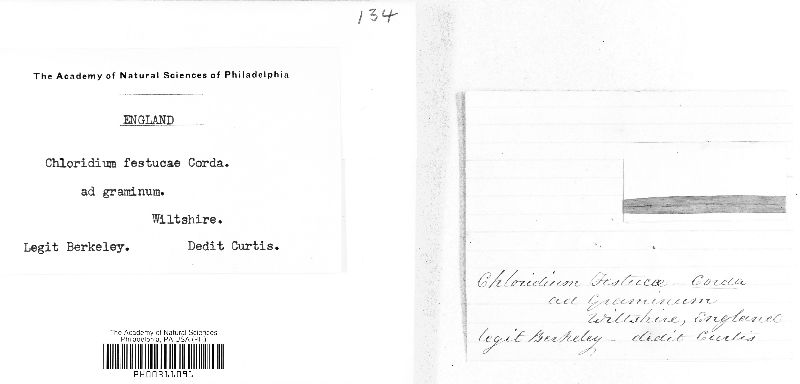 134
The Academy of Natural Sciences of Philadelphia
ENGLAND
Chloridium festucae Corda.
ad graminum.
Wiltshire.
Legit Berkeley. Dedit Curtis.
The Academy of Natural Sciences
Philadelphia, PA USA (PH)
PH00311091
Chloridium Festucæ Corda
ad Graminum
Wiltshire, England
legit Berkeley – dedit Curtis